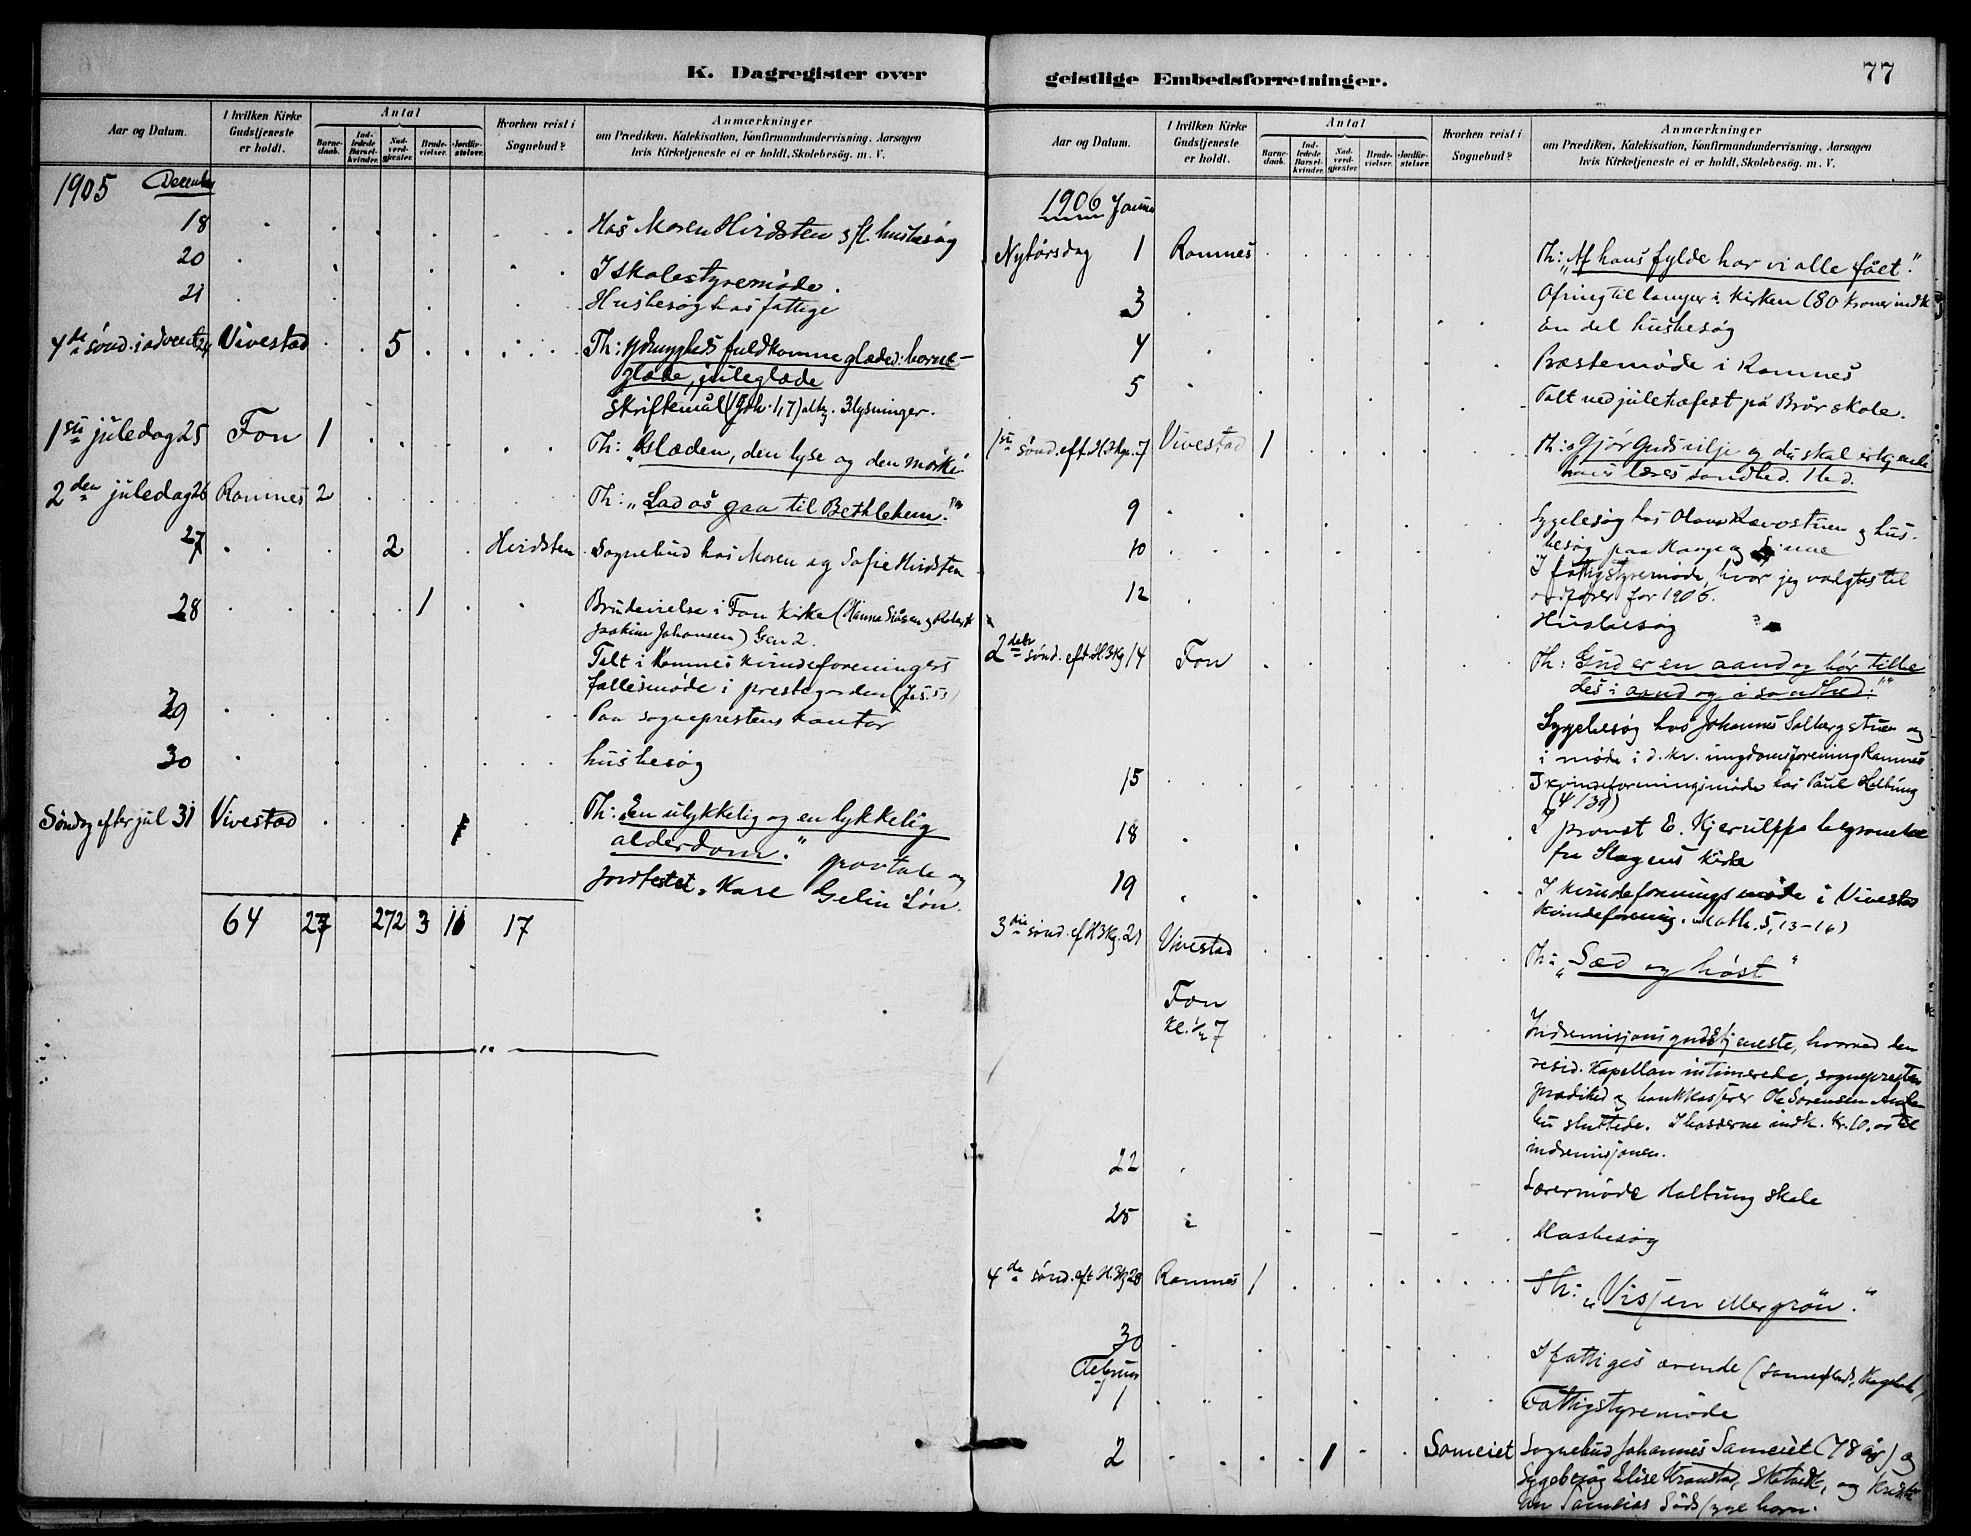 K. Dagregister over
Aar og Datum.
I hvilken Kirke Gudstjeneste er holdt.
Antal
Barnedaab.
Indledede Barselkvinder.
Nadverdgjester.
Brudevielser.
Jordfæstelser.
Hvorhen reist i Sognebud?
Anmærkninger
om Prædiken, Katekisation, Konfirmandundervisning, Aarsagen
hvis Kirketjeneste ei er holdt, Skolebesög. m. V.
1905 December
18 Hos Moren Hvidsten
20 I skolestyremøde.
21 Husbesøg hos fattige
4de sønd. i advent 24 Vivestad 5 Th: fuldkomne glæde: barne-
glæde, juleglæde
Skriftemål (Joh. 1,7) 3 lysninger.
1ste juledag 25 Fon 1 Th: "Glæden, den lyse og den mørke
2den juledag 26 Ramnes 2 Th: "Lad os gaa til Bethlehem."
27 2 Hvidsten Sognebud hos Moren og Sofie Hvidsten
28 1 Brudevielse i Fon kirke (Hanna
Joakim Johansen) Gen 2.
Talt i Ramnes kvindeforeningers
fællesmøde i prestegarden (Jes. 53)
29 Paa sogneprestens kontor
30 husbesøg
Søndag efter jul 31 Vivestad 1 Th: "En ulykkelig og en lykkelig
alderdom." gravtale og
jordfestet. Karl Gelin Løn.
64 27 272 3 11 17
geistlige Embedsforretninger.
77
Aar og Datum.
I hvilken Kirke Gudstjeneste er holdt.
Antal
Barnedaab.
Indledede Barselkvinder.
Nadverdgjester.
Brudevielser.
Jordfæstelser.
Hvorhen reist i Sognebud?
Anmærkninger
om Prædiken, Katekisation, Konfirmandundervisning, Aarsagen
hvis Kirketjeneste ei er holdt, Skolebesög. m. V.
1906 Januar
Nytårsdag 1 Ramnes Th: "Af hans fylde har vi alle fået."
Ofring til lamper i kirken (80 kroner indk
3 En del husbesøg
4 Præstemøde i Ramnes
5 Talt ved juletræfest på Brår skole.
1ste sønd. eft. H3kgr. 7 Vivestad 1 Th: "Gjør Guds vilje og du skal erkjende
læres sandhed.
9 Sygebesøg hos og hus-
besøg paa Hauge og
10 I fattigstyremøde, hvor jeg valgtes til
ordfører for 1906.
12 Husbesøg
2den sønd. eft. H.3kg 14 Fon Th: Gud er en aand og bør tilbe-
des i aand og i sandhed."
Sygebesøg hos Johannes Solbergstuen og
i møde i d. kr. ungdomsforening Ramnes
15 I kvindeforeningsmøde hos Paul Haltung
18 I provst E. Kjerulffs begravelse
fra Slagens kirke
19 I kvindeforeningsmøde i Vivestad
kvindeforening. Math. 5, 13-16)
3die sønd. ef H3kg. 21 Vivestad Th: "Sæd og høst"
Fon
kl. 1/2 7 Indremisjonsgudstjeneste, hvorved den
resid. Kapellan intimerede, sognepresten
prædiked og bankkasserer Ole Sørensen
sluttede. I bøsserne indk. kr. 10.00 til
indremisjonen.
22 Lærermøde Haltung skole
25 Husbesøg
4de sønd. eft. H.3kg 28 Ramnes 1 Th: "Vissen eller grøn."
30 I fattiges ærende
Februar
1 Fattigstyremøde
2 1 Sameiet Sognebud Johannes Sameiet (78 år) og
Sygebesøg Elise og